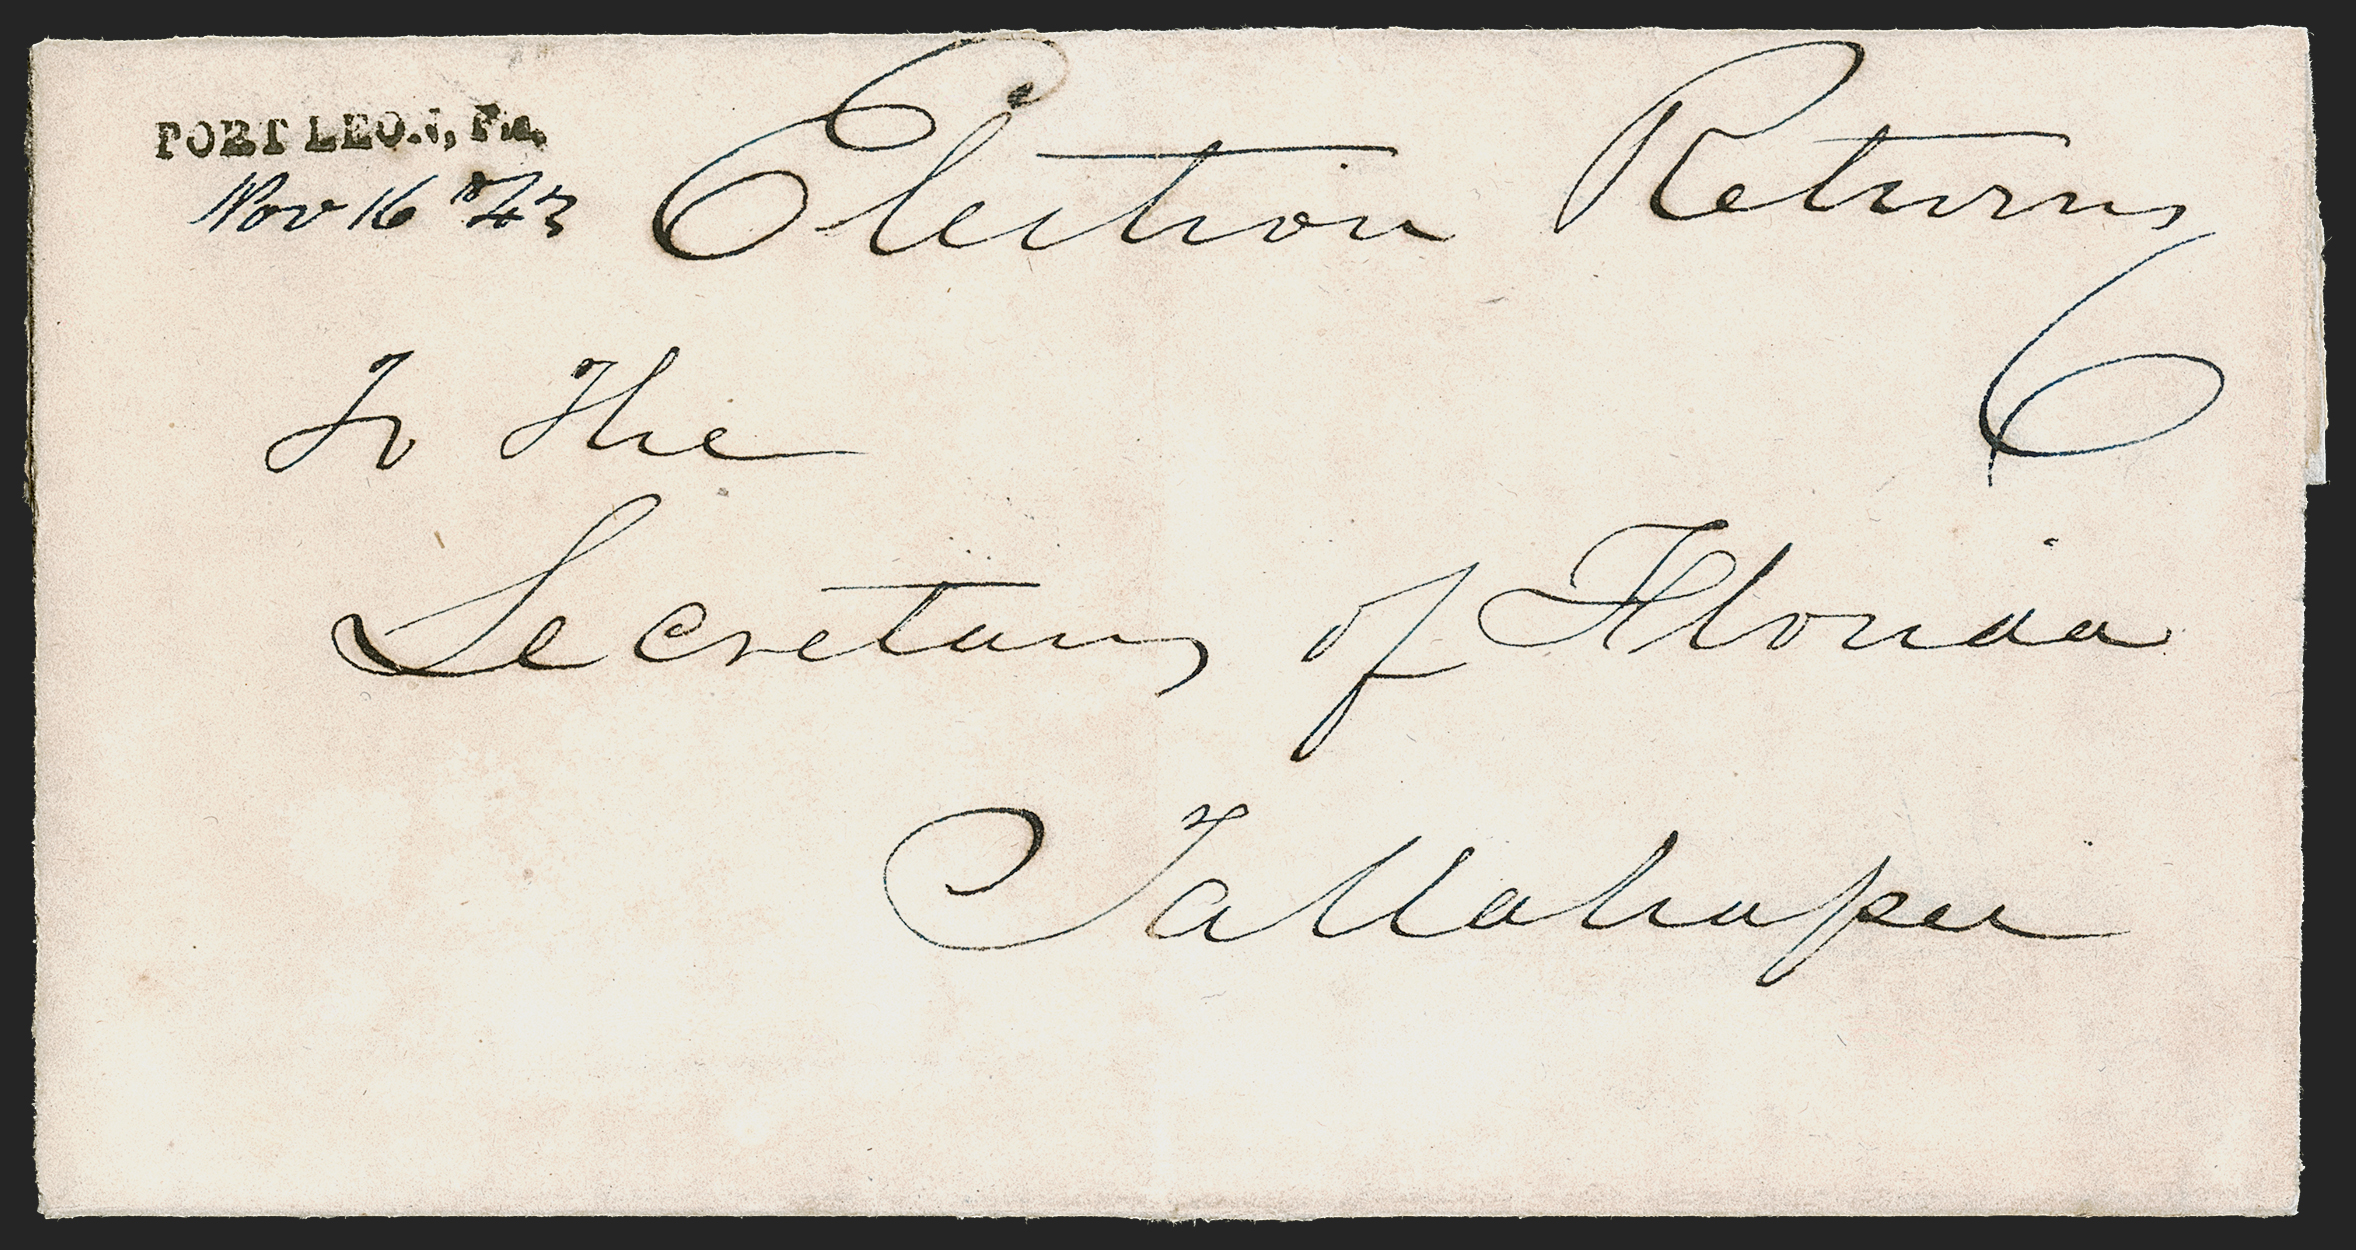 PORT LEON, Fla.
Nov 16 '43
Election Returns
To The
Secretary of Florida
Tallahassee